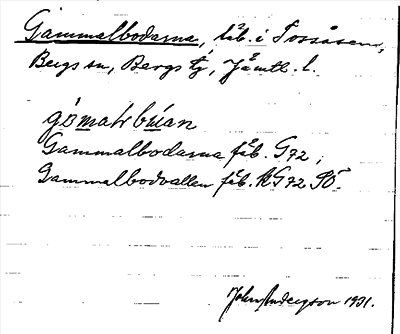 Gammalbodarna, fäb. i Tossåsen,
Bergs sn, Bergs tg, Jämtl. l.
gòmatrbúan
Gammalbodarna fäb. G72;
Gammalbodvallen fäb. KG72 SÖ.
John Andersson 1931.